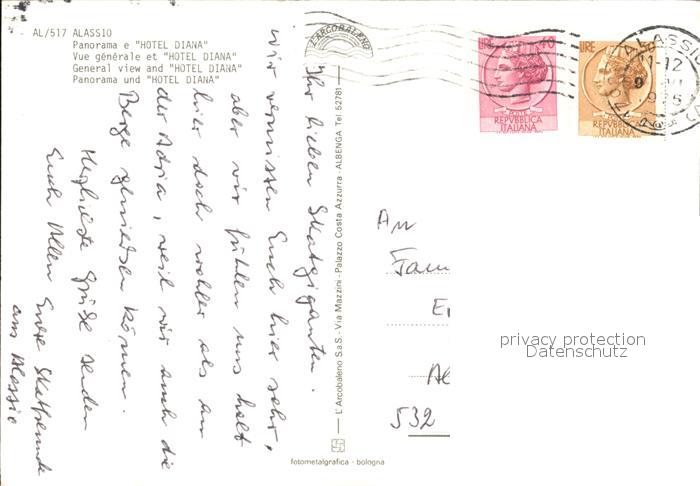 AL/517 ALASSIO
Panorama e "HOTEL DIANA"
Vue générale et "HOTEL DIANA"
General view and "HOTEL DIANA"
Panorama und "HOTEL DIANA"
L'ARCOBALENO
Ihr lieben Skatgiganten.
Wir vermissen Euch hier sehr,
aber wir fühlen uns halt
hier doch wohler als an
der Adria, weil wir auch die
Berge genießen können.
Herzliche Grüße senden
Euch Allen Eure Skatfreunde
aus Alassio
L'Arcobaleno S.a.S. - Via Mazzini - Palazzo Costa Azzurra - ALBENGA Tel 52781
LIRE 40
POSTE
REPVBBLICA
ITALIANA
LIRE
POSTE
REPVBBLICA
ITALIANA
ALASSIO
11-12
An
Fam
532
privacy protection
Datenschutz
fotometalgrafica - bologna